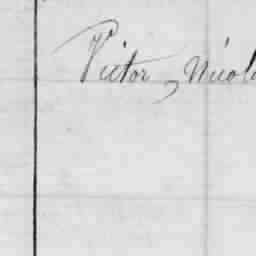 Victor, Nicol